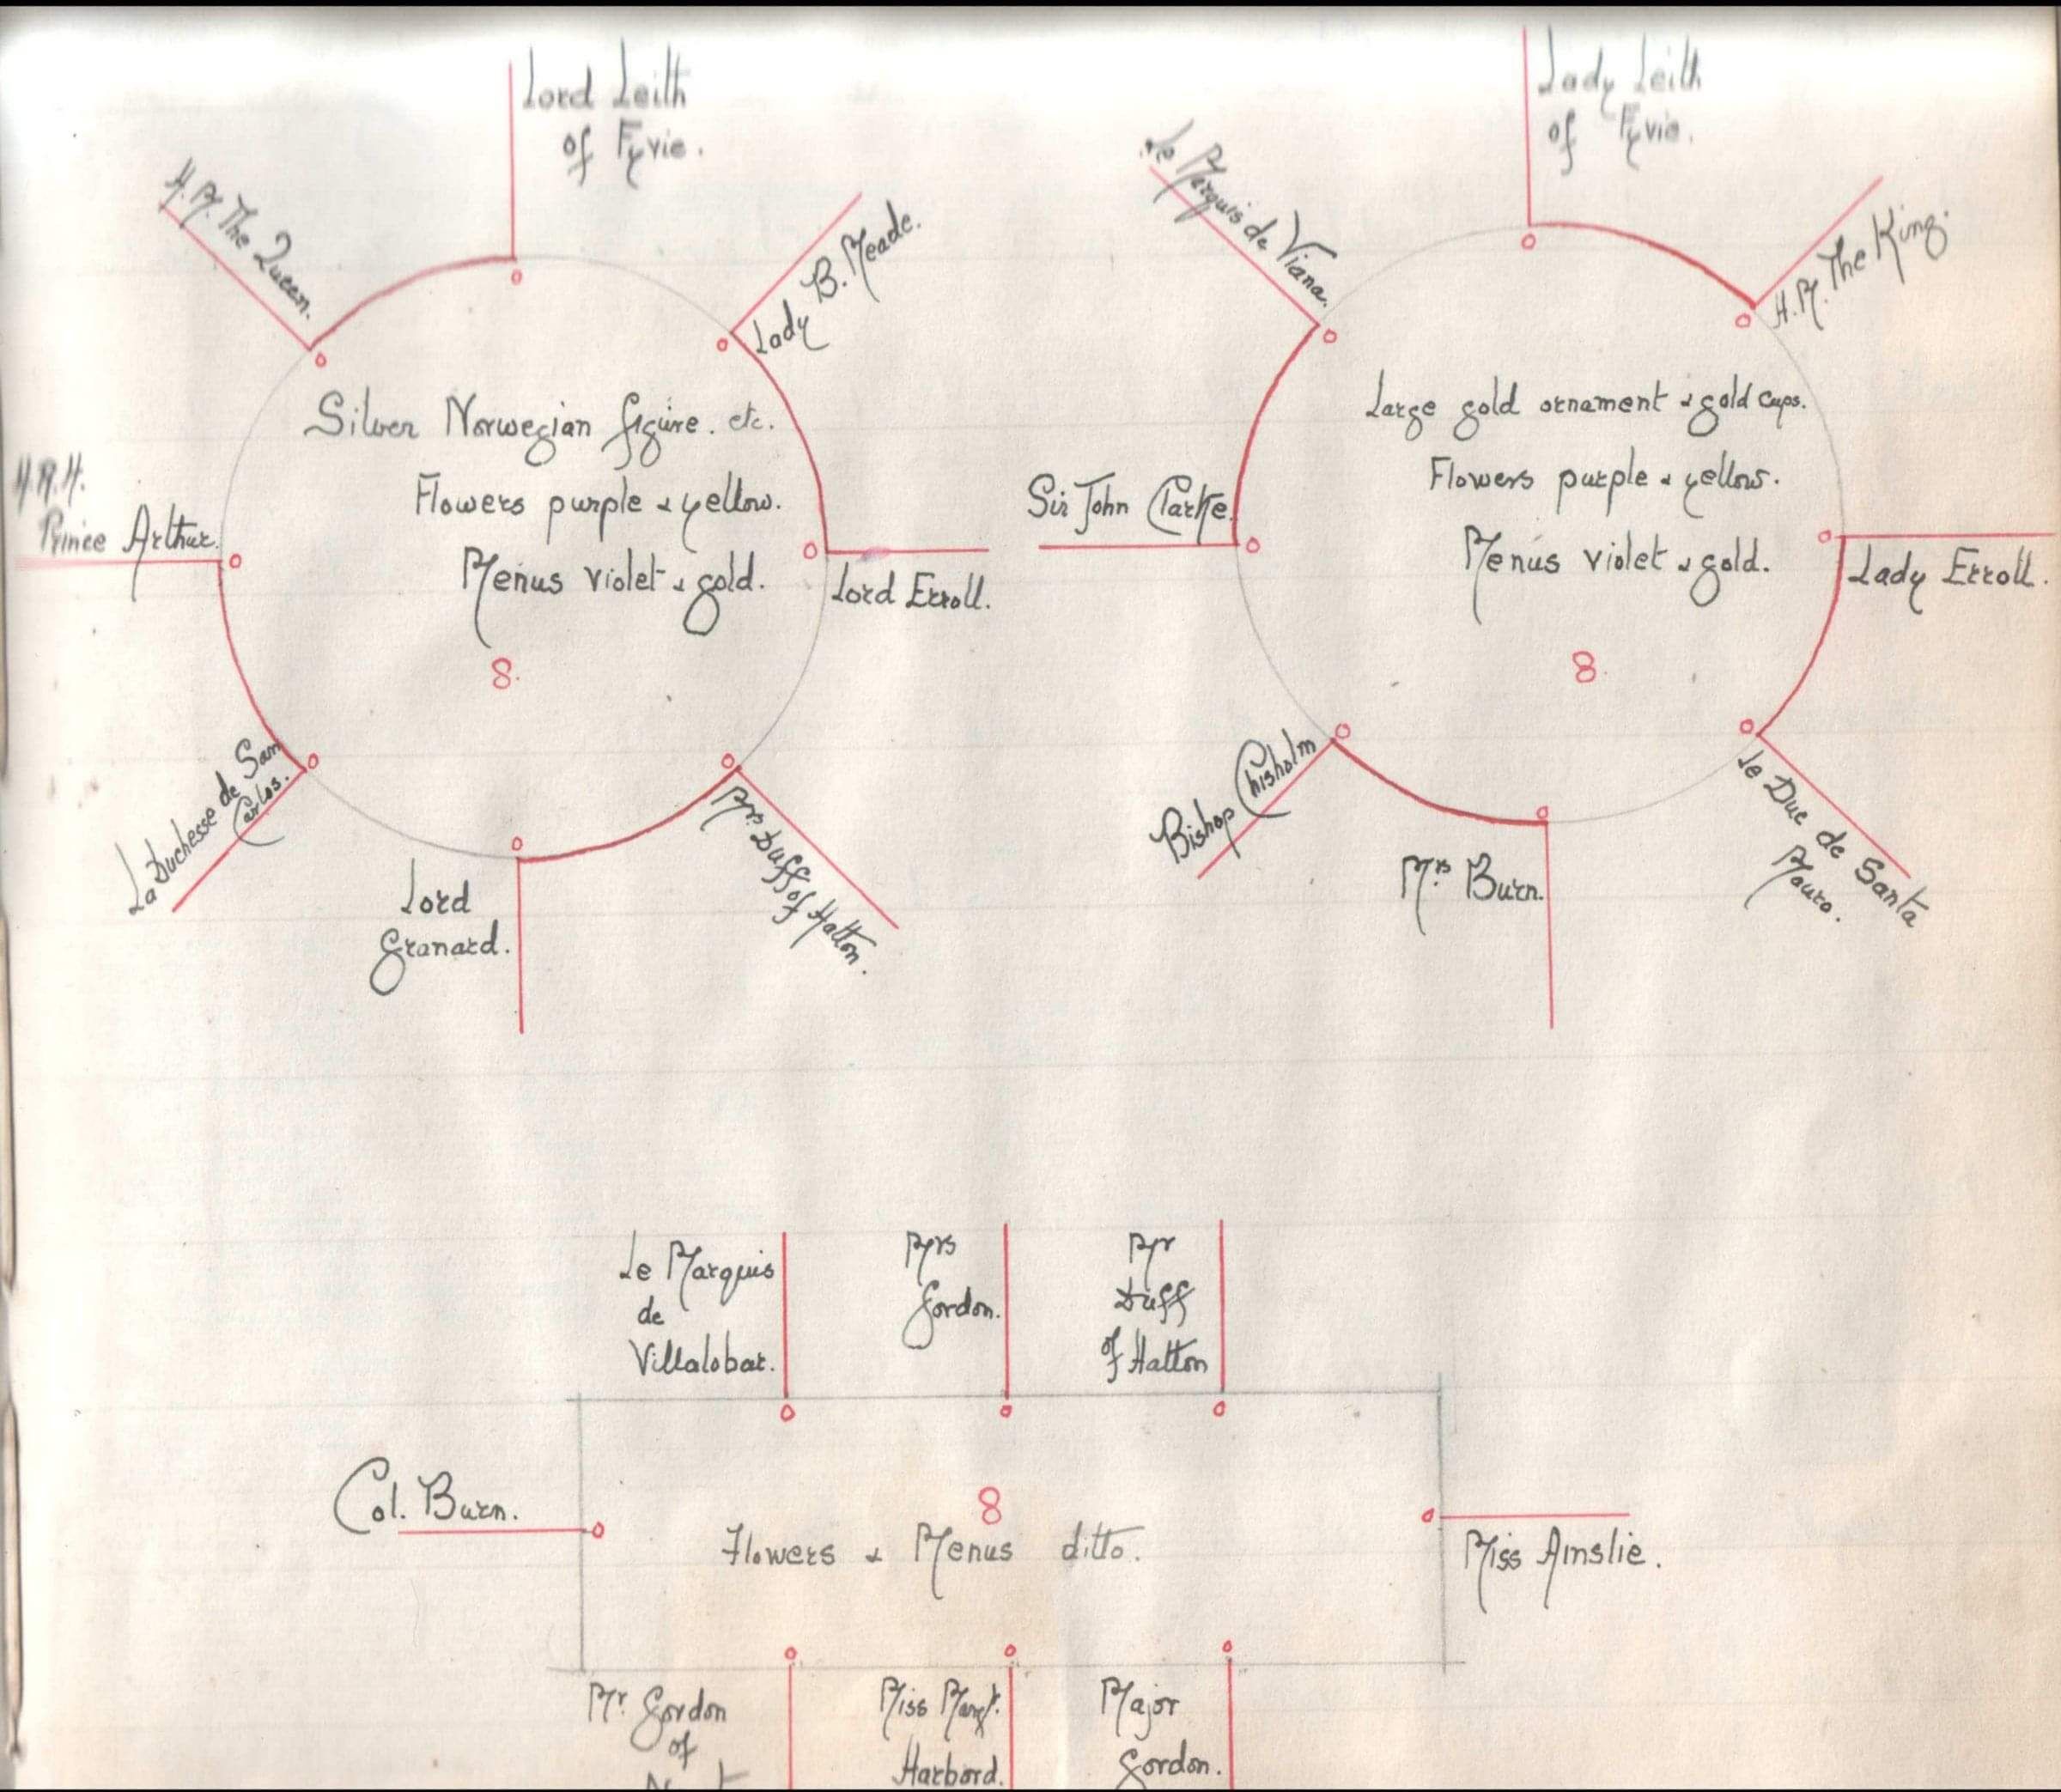 Lord Leith
of Fyvie.
H.M. The Queen.
Lady B. Meade.
H.R.H.
Prince Arthur.
Silver Norwegian figure. etc.
Flowers purple & yellow.
Menus violet & gold.
8.
Lord Erroll.
La Duchesse de San
Carlos.
Lord
Granard.
Mrs Duff of Hatton.
Lady Leith
of Fyvie.
Le Marquis de Viana.
H.M. The King.
Sir John Clarke.
Large gold ornament & gold cups.
Flowers purple & yellow.
Menus violet & gold.
8.
Lady Erroll.
Bishop Chisholm
Mrs Burn.
Le Duc de Santa
Mauro.
Le Marquis
de
Villalobar.
Mrs
Gordon.
Mr
Duff
of Hatton
Col. Burn.
8
Flowers & Menus ditto.
Miss Ainslie.
Mr. Gordon
of
Miss Margt.
Harbord.
Major
Gordon.